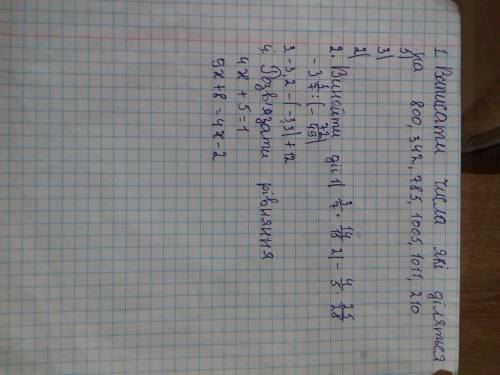 1. Виписати числа які діляться
на 800, 342, 785, 1005, 1011, 210
5)
3)
2)
2. Виконати дії 1) 3/7 · 14/18 2) - 4/5 · 25/28
- 3 3/7 : (- 72/49)
3. -3,2 - (-3,3) + 12
4. Розв'язати рівняння
4x + 5 = 1
5x + 8 = 4x - 2